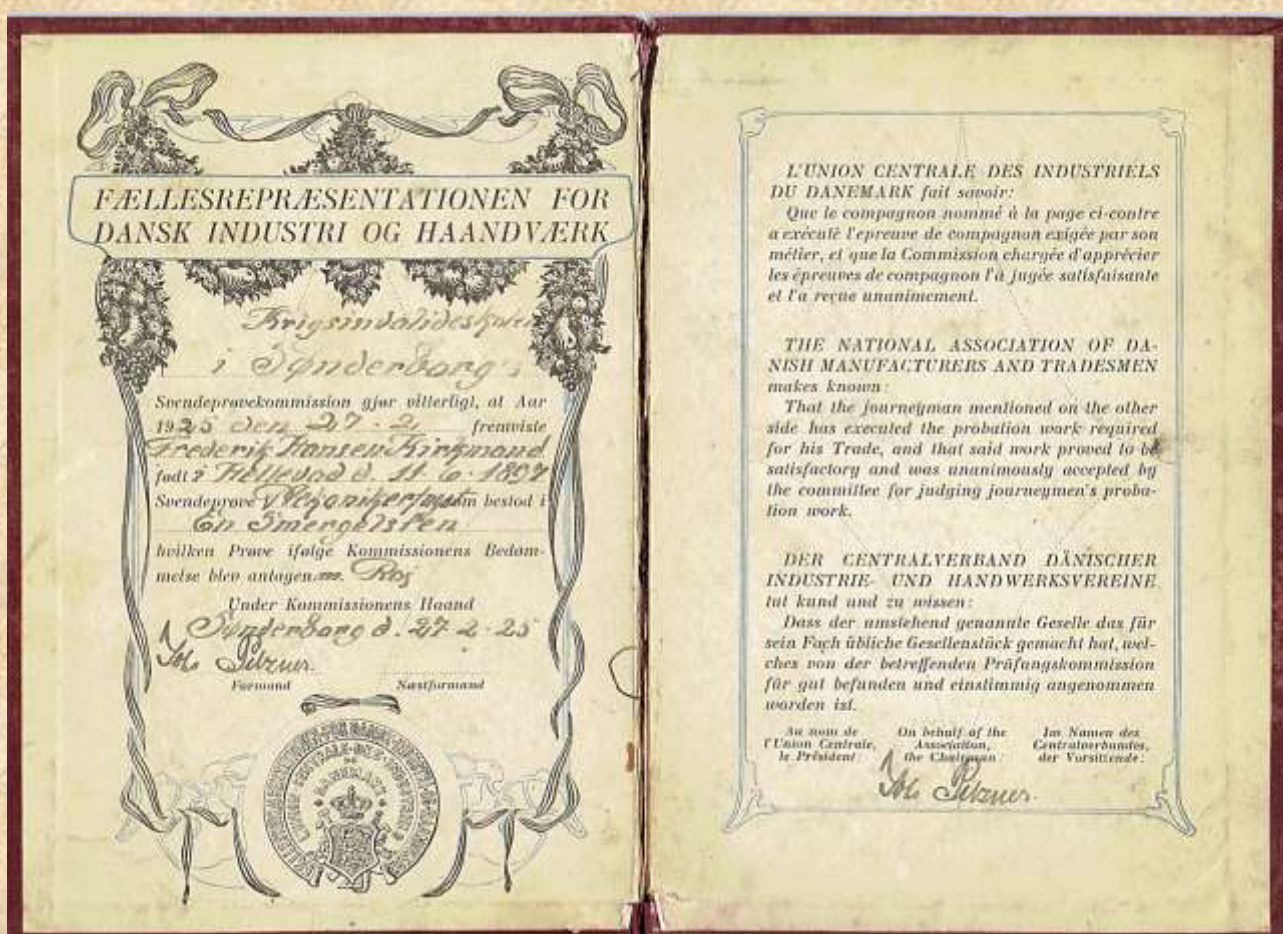 FÆLLESREPRÆSENTATIONEN FOR
DANSK INDUSTRI OG HAANDVÆRK
i Sønderborg
Svendeprøvekommission gjør vitterligt, at Aar
1925 den 27-2 fremviste
Frederik Hansen Kirkmand
født i Hellevad d. 11-6-1897
Svendeprøve som bestod i
En Smergelsten
hvilken Prøve ifølge Kommissionens Bedøm-
melse blev antagen m. Ros
Under Kommissionens Haand
Sønderborg d. 27-2-25
Formand Næstformand
L'UNION CENTRALE DES INDUSTRIELS
DU DANEMARK fait savoir:
Que le compagnon nommé à la page ci-contre
a exécuté l'epreuve de compagnon exigée par son
métier, et que la Commission chargée d'apprécier
les épreuves de compagnon l'à jugée satisfaisante
et l'a reçue unanimement.
THE NATIONAL ASSOCIATION OF DA-
NISH MANUFACTURERS AND TRADESMEN
makes known:
That the journeyman mentioned on the other
side has executed the probation work required
for his Trade, and that said work proved to be
satisfactory and was unanimously accepted by
the committee for judging journeymen's proba-
tion work.
DER CENTRALVERBAND DÄNISCHER
INDUSTRIE- UND HANDWERKSVEREINE
tut kund und zu wissen:
Dass der umstehend genannte Geselle das für
sein Fach übliche Gesellenstück gemacht hat, wel-
ches von der betreffenden Prüfungskommission
für gut befunden und einstimmig angenommen
worden ist.
Au nom de l'Union Centrale, le Président:
On behalf of the Association, the Chairman:
Im Namen des Centralverbandes, der Vorsitzende: